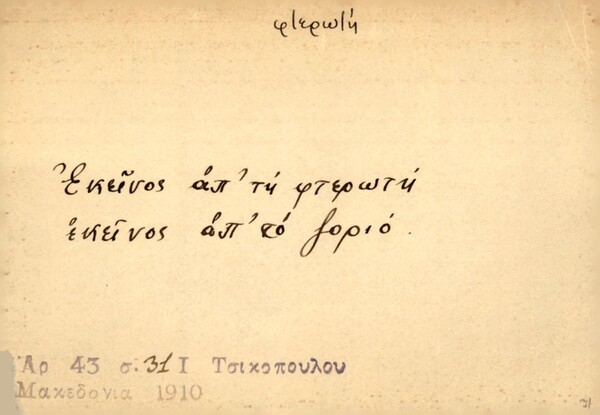 φτερωτή
Ἐκεῖνος ἀπ' τή φτερωτή
ἐκεῖνος ἀπ' τό βοριό.
Ἀρ 43 σ. 31 Ι Τσικοπουλου
Μακεδονια 1910
31